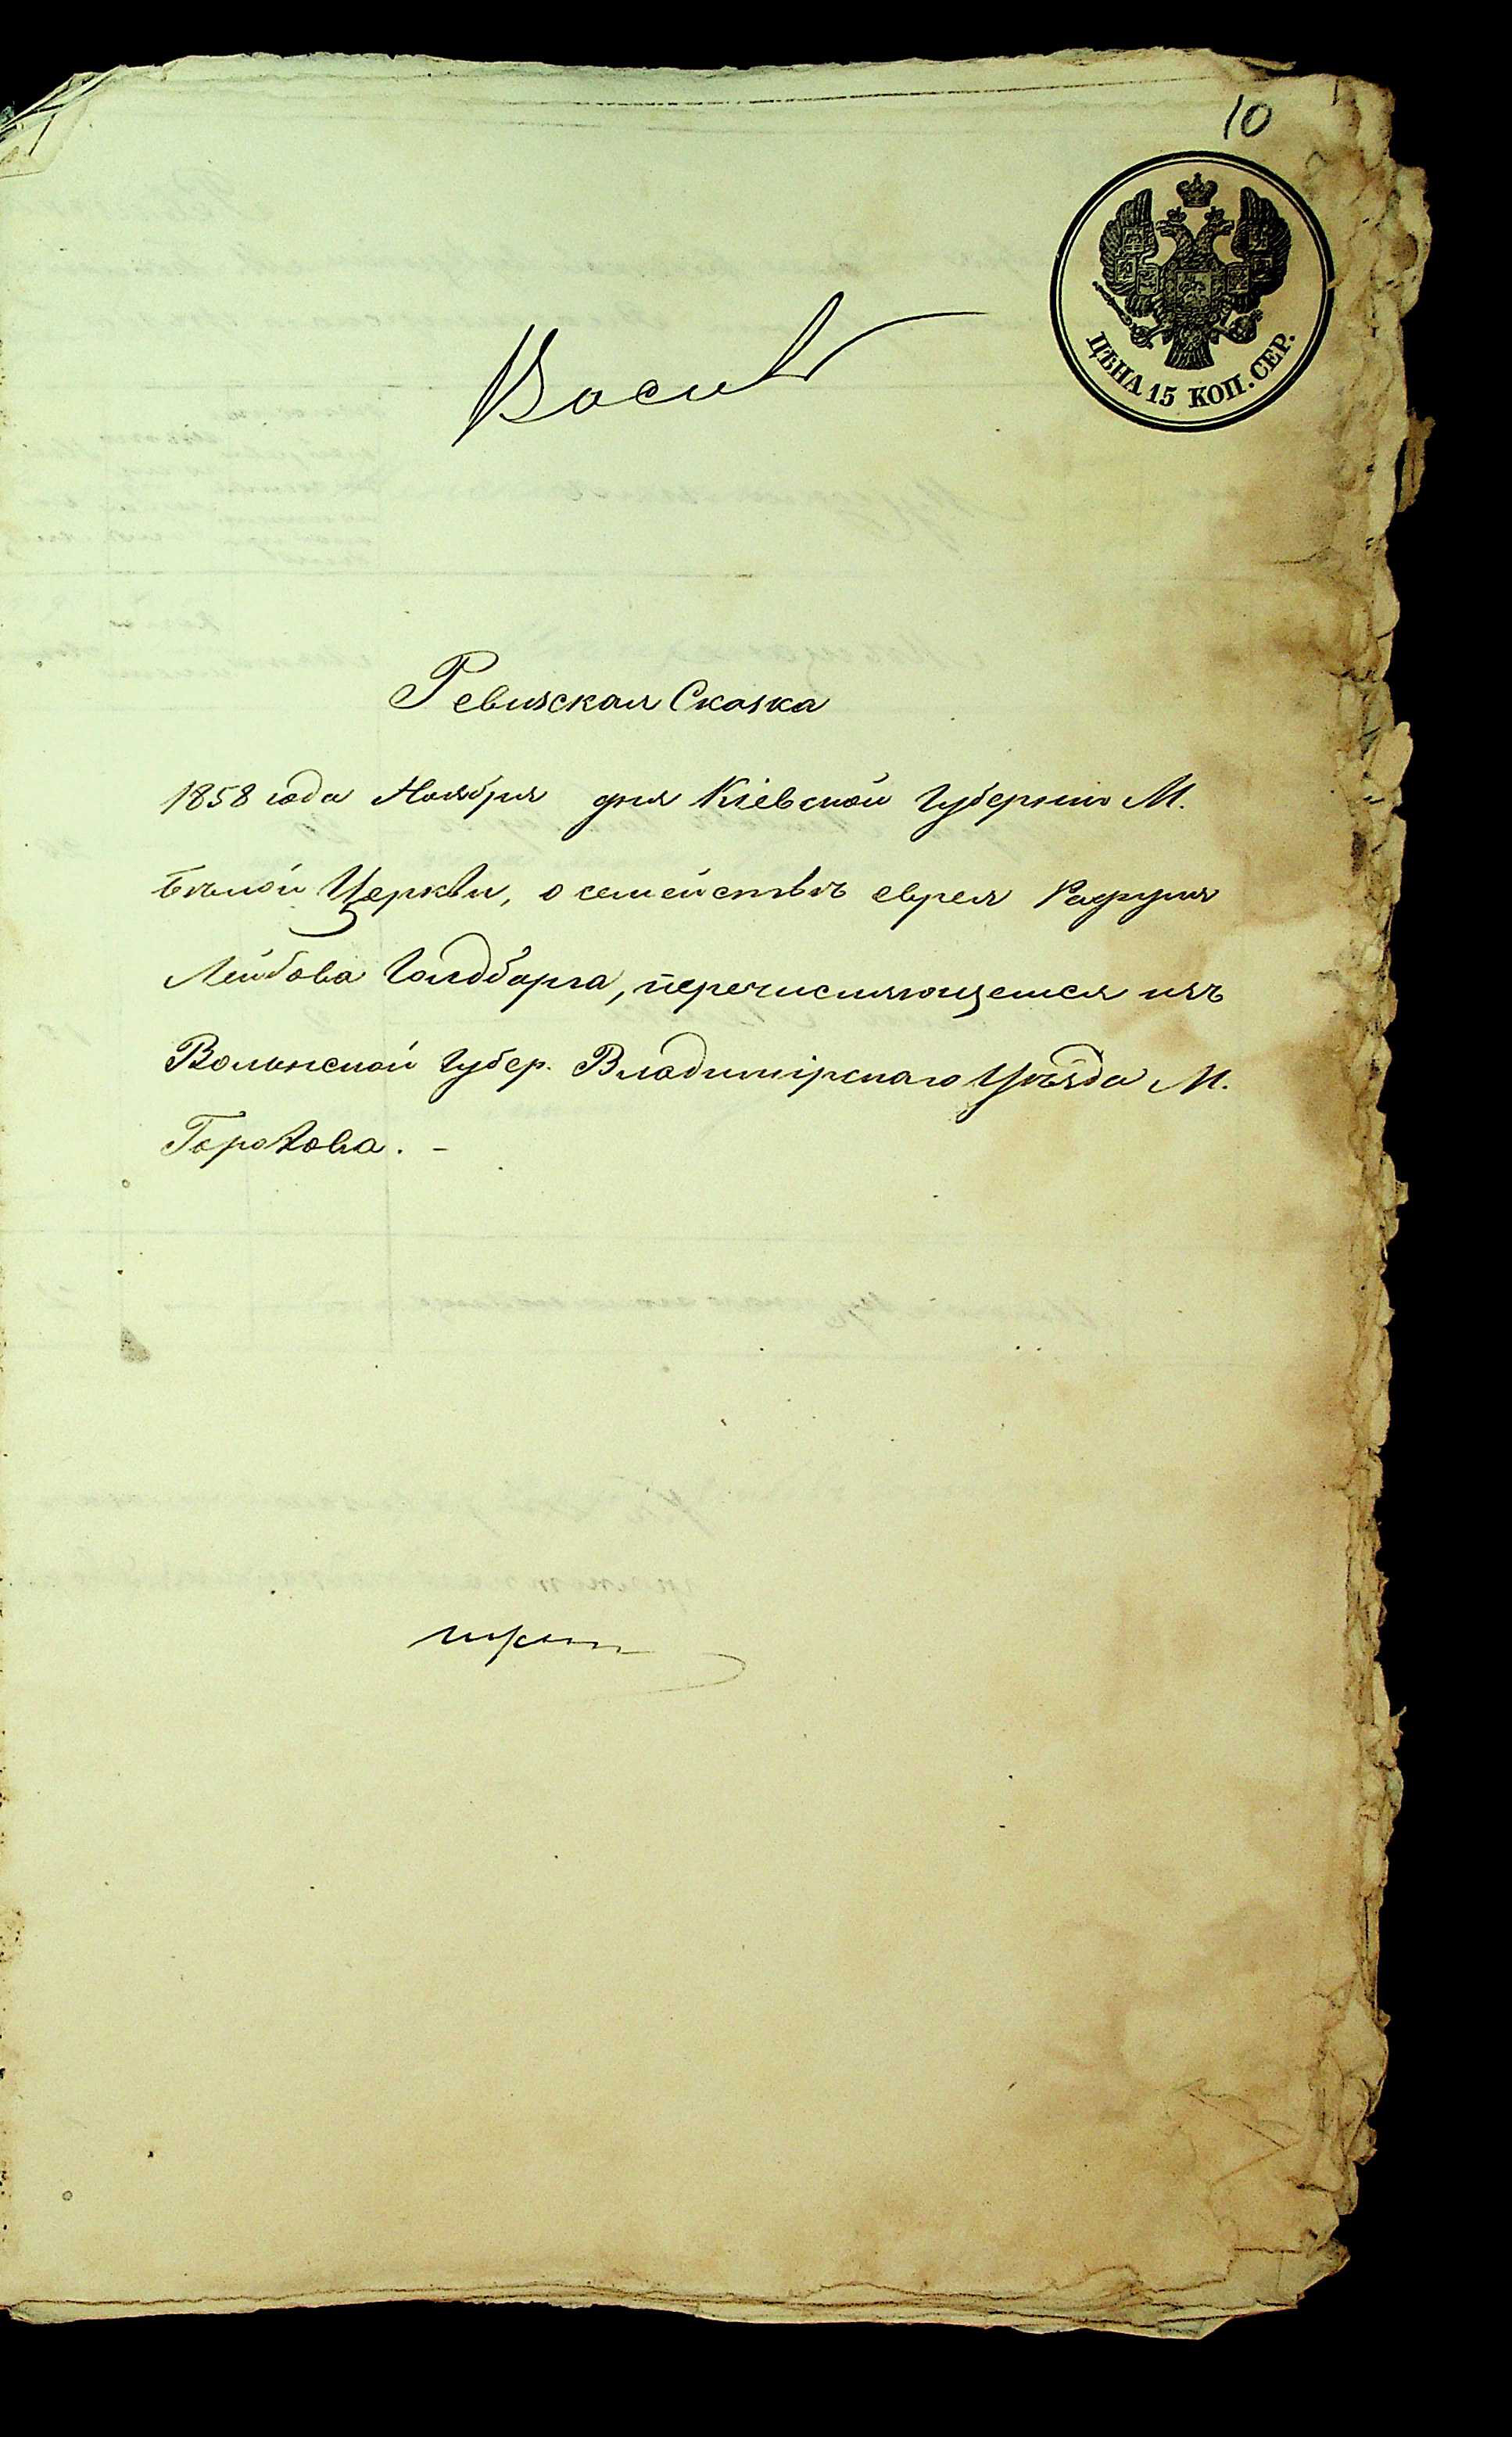 10
ЦѢНА 15 КОП. СЕР.
Ревизская Сказка
1858 года Ноября дня Кіевской Губерніи М.
Бѣлой Церкви, о семействѣ еврея
Лейбова Голдбарга, перечисляющемся изъ
Волынской Губер. Владимірскаго Уѣзда М.
Горохова. -